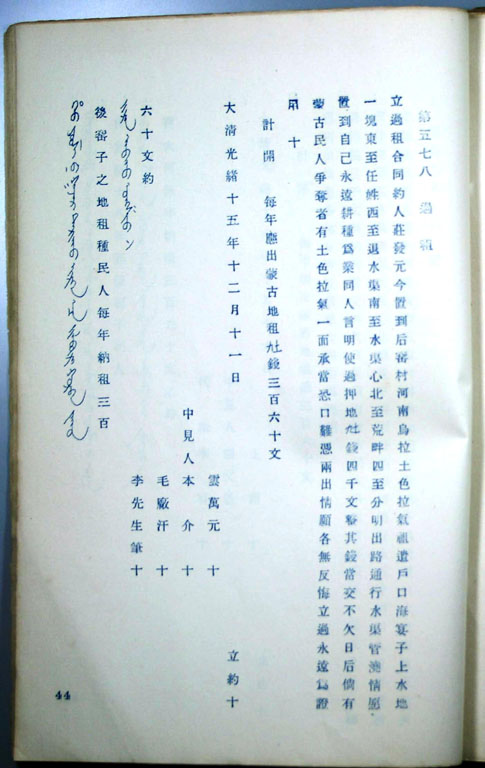 第五七八 過租
立過租合同約人莊發元今置到后窑村河南烏拉土色拉氣祖遺戶口海宴子上水地
一塊東至任姓西至退水渠南至水渠心北至荒畔四至分明出路通行水渠管澆情愿
置到自己永遠耕種爲業同人言明使過押地 錢四千文整其錢當交不欠日后倘有
蒙古民人爭奪者有土色拉氣一面承當恐口難憑兩出情願各無反悔立過永遠爲證
用 十
計開 每年應出蒙古地租 錢三百六十文
大清光緒十五年十二月十一日 立約十
雲萬元 十
中見人本介 十
毛廠汗 十
李先生筆十
六十文約
後窑子之地租種民人每年納租三百
44